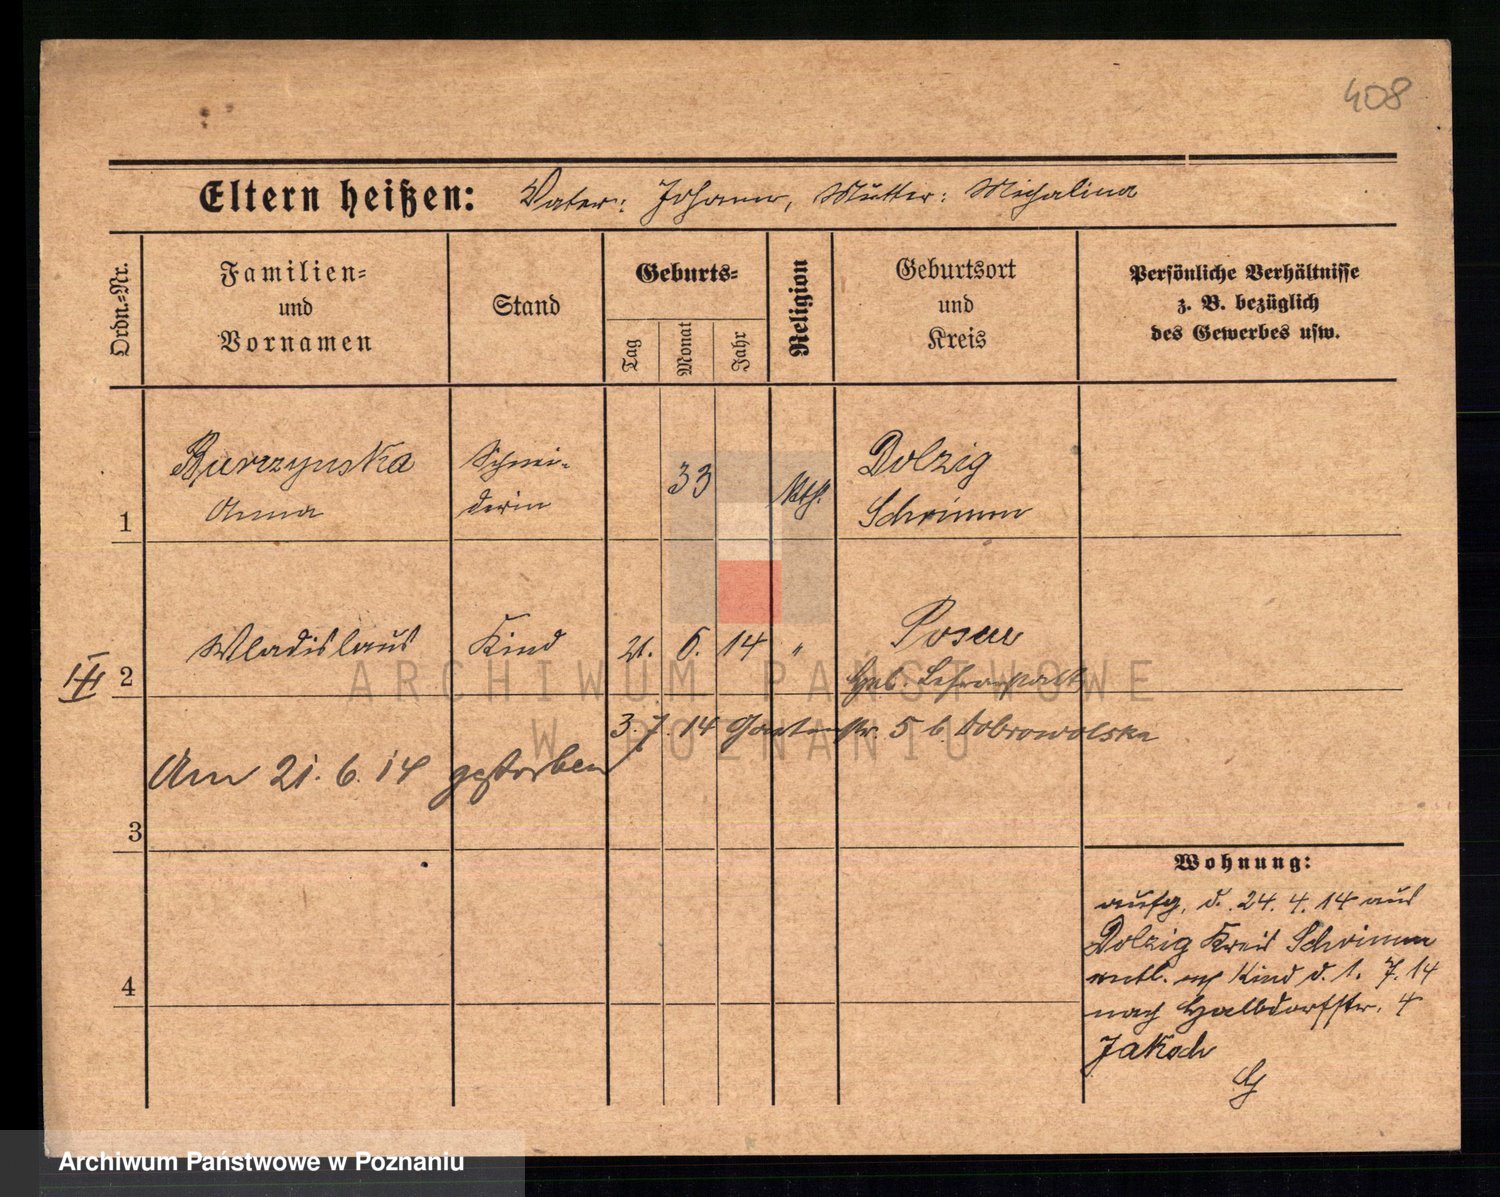 408
Eltern heißen: Vater: Johann, Mutter: Michalina
Ordn.-Nr.
Familien-
und
Vornamen
Stand
Geburts-
Tag
Monat
Jahr
Religion
Geburtsort
und
Kreis
Persönliche Verhältnisse
z. B. bezüglich
des Gewerbes usw.
1
Burczynska
Anna
Schnei-
derin
33
kth.
Dolzig
Schrimm
III
2
Wladislaus
Kind
21. 6. 14 "
Posen
3. 7. 14 Gartenstr. 5 b. Dobrowolska
Am 21. 6. 14 gestorben
3
4
Wohnung:
aufg. d. 24. 4. 14 aus
Dolzig Kreis Schrimm
entl. Kind d. 1. 7. 14
nach Halbdorfstr. 4
ARCHIWUM PAŃSTWOWE
W POZNANIU
Archiwum Państwowe w Poznaniu